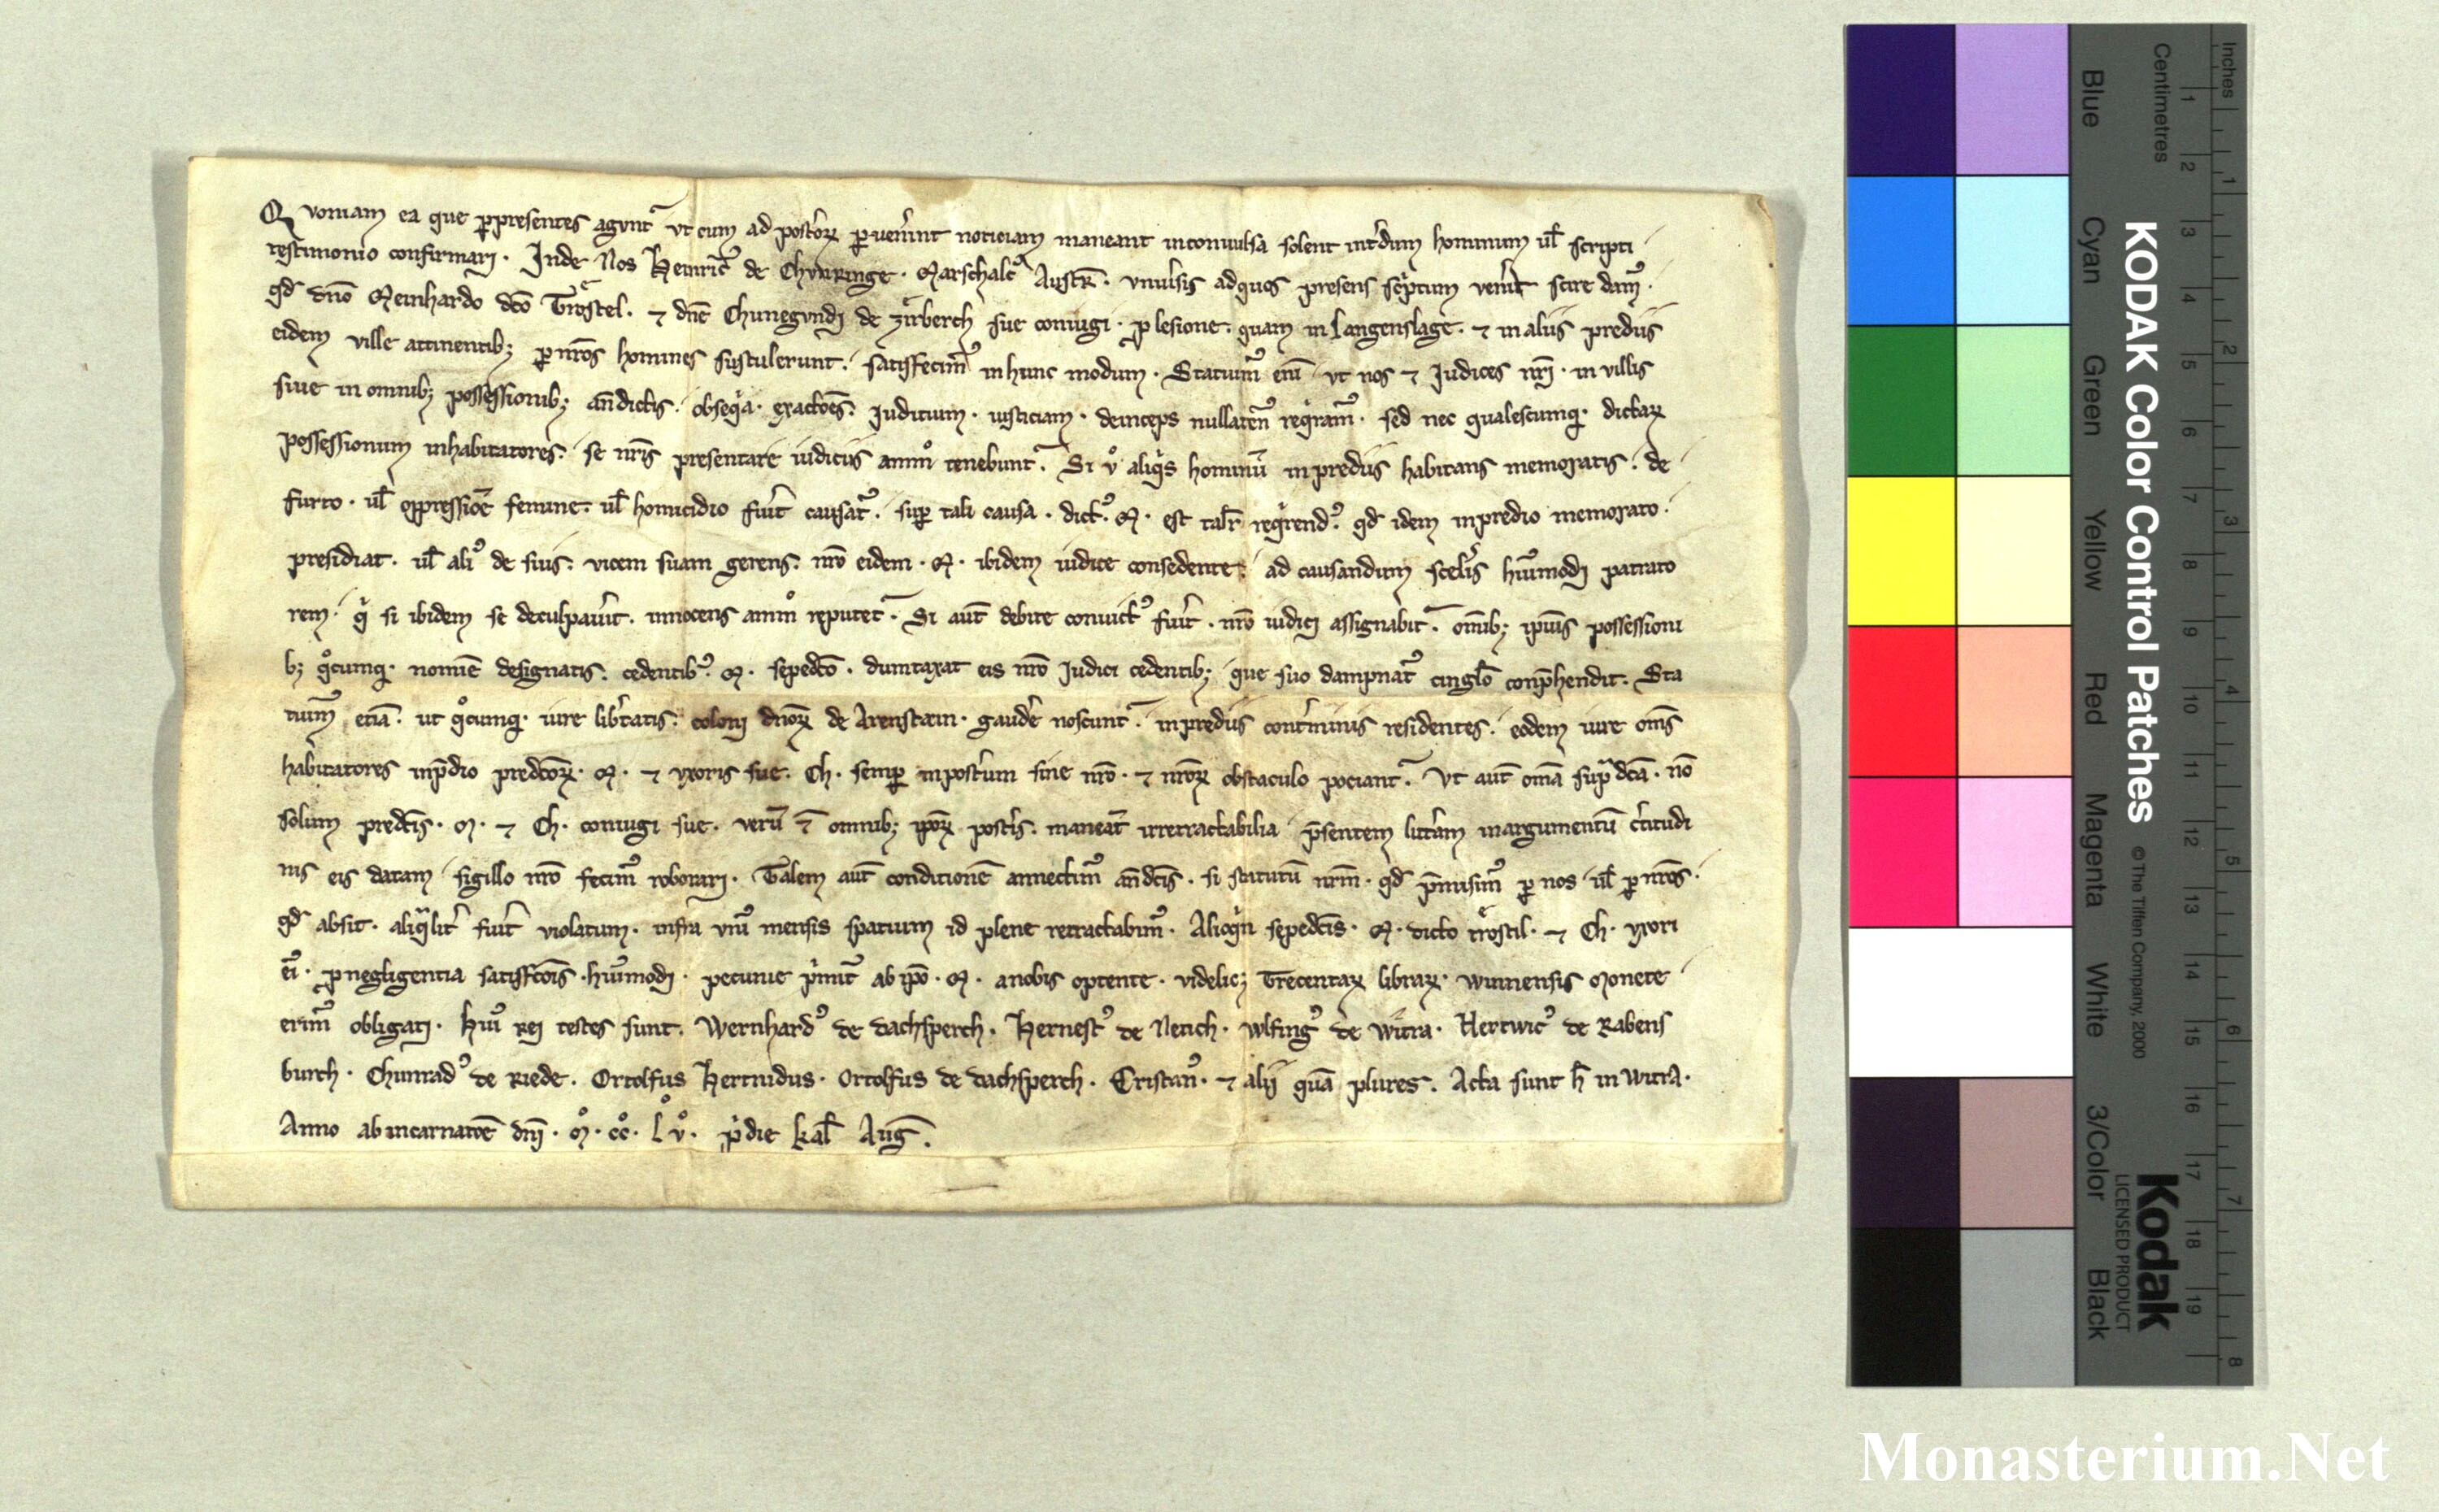 Qvoniam ea que p̱presentes agvnt᷑ vt cum ad posto̍ꝝ ꝑuen̍int noticiam maneant inconuulsa solent int̍dum hominum ul̄ scripti
testimonio confirmari. Inde Nos Heinric᷒ de Chvnringe. Marschalc᷒ Austr̄. vniu̍sis adquos presens sc̍ptum uen̍it scire dam᷒.
qd̄ dn̄o Meinhardo dc̄o Trostel. ⁊ dn̄e Chunegvndi de zirberch sue coniugi. ꝓ lesione. quam in Langenslage. ⁊ in aliis prediis
eidem ville attinentib; ꝑ nr̄os homines sustulerunt. satisfecim᷒ in hunc modum. Statuim᷒ eni̅ vt nos ⁊ Iudices nr̄i. in villis
siue in omnib; possessionib; an̄dictis. obseq̍a. exactōes. Iudicium. iusticiam. deinceps nullaten᷒ req̍ram᷒. sed nec qualescumq;. dictaꝝ
possessionum inhabitatores. se nr̄is presentare iudiciis amm° tenebunt᷑. Si v° aliq̍s hominū in prediis habitans memoratis. de
furto. ul̄ oppressiōe femine. ul̄ homicidio fu̍it causat᷒. suꝑ tali causa. dict᷒. M. est talr̄ req̍rend᷒. qd̄ idem in predio memorato.
presidiat. ul̄ ali᷒ de suis. vicem suam gerens. nr̄o eidem. M. ibidem iudice consedente. ad causandum scel̍is hui᷒modi patrato
rem. q̍ si ibidem se deculpau̍it. innocens amm° reputet᷑. Si aut̄ debite conuict᷒ fu̍it. nr̄o iudici assignabit᷑. omib; ip̄ius possessioni
b; q°cumq;. nomīe designatis. cedentib᷒. M. sepedc̄o. dumtaxat eis nr̄o Iudici cedentib; que suo dampnat᷒ cingl̄o conp̄hendit. Sta
tuim᷒ eciā. ut q°cumq;. iure lib̍tatis. coloni dn̄oꝝ de Arenstain. gaude̍ noscunt᷑. in prediis cont̍minis residentes. eodem iure om̄s
habitatores inp̄dio predc̄oꝝ. M. ⁊ vxoris sue. Ch. semꝑ inpost̍um sine nr̄o. ⁊ nr̄oꝝ obstaculo pociant᷑. Vt aut̄ om̄a supᷓdc̄a. nō
solum predc̄is. M. ⁊ Ch. coniugi sue. verū ⁊̄ omnib; ip̄oꝝ post̍is. maneāt irretractabilia p̄sentem litt̍am inargumentū c̍titudi
nis eis datam sigillo nr̄o fecim᷒ roborari. Talem aut̄ conditionē annectim᷒ an̄dc̄is. si statutū nr̄m. qd̄ p̄misim᷒ ꝑ nos ul̄ ꝑ nr̄os.
qd̄ absit. aliqᷓlit̍ fu̍it violatum. infra vnū mensis spatium id plene retractabim᷒. Alioq̍n sepedc̄is. M. dicto trostil. ⁊ Ch. vxori
ei᷒. ꝓ negligentia satisfc̄ois. hui᷒modi. pecunie p̍mit᷒ ab ip̄o. M. anobis optente. videlic; Trecentaꝝ libraꝝ. winnensis Monete
erim᷒ obligati. Hui᷒ rei testes sunt. Wernhard᷒ de dachsperch. Hernest᷒ de Netich. wlfing᷒ de Witra. Hertwic᷒ de Rabens
burch. Chunrad᷒ de Riede. Ortolfus Hertnidus. Ortolfus de dachsperch. Cristan᷒. ⁊ alij quā plures. Acta sunt h̄ in witra.
Anno ab incarnatōe dn̄i. M°. cc°. l° v°. p̍die kal̄ Aug̅.
KODAK Color Control Patches
© The Tiffen Company, 2000
Kodak
LICENSED PRODUCT
Blue Cyan Green Yellow Red Magenta White 3/Color Black
Centimetres 1 2 3 4 5 6 7 8 9 10 11 12 13 14 15 16 17 18 19
Inches 1 2 3 4 5 6 7 8
Monasterium.Net